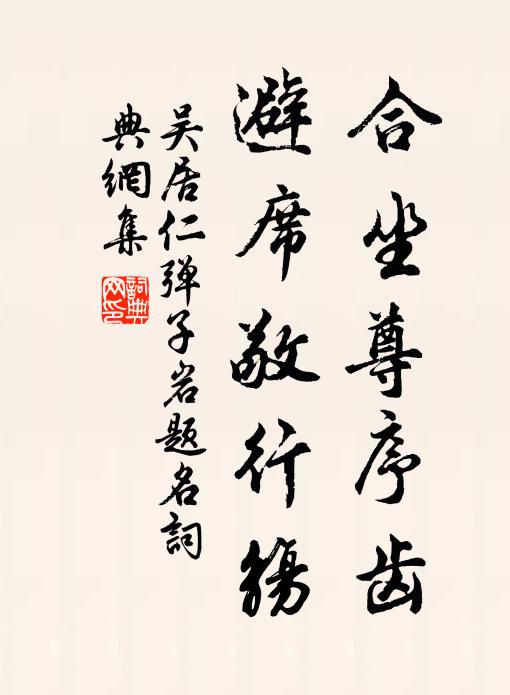 合坐尊序齿
避席敬行觞
吴居仁弹子岩题名詞
典網集
詞典網印